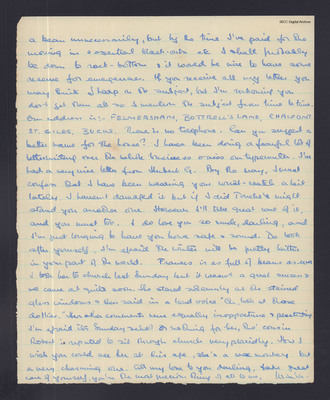 IBCC Digital Archive
a bean unnecessarily, but by the time I've paid for the
moving in & essential black-outs etc I shall probably
be down to rock-bottom & it would be nice to have some
reserve for emergencies. If you receive all my letters you
may think I harp on the subject, but I'm reckoning you
don't get them all so I mention the subject from time to time.
Our address is:- FELMERSHAM, BOTTRELL'S LANE, CHALFONT
ST. GILES, BUCKS. There is no telephone. Can you suggest a
better name for the house? I have been doing a fearful lot of
letterwriting over the whole business & on typewriter. I've
had a very nice letter from Herbert G. By the way, I must
confess that I have been wearing your wrist-watch a bit
lately. I haven't damaged it but if I did I'd
stand you another one. However I'll take great care of it,
and you must too. I do love you so much, darling, and
I'm just longing to have you home safe & sound. Do look
after yourself. I'm afraid the winter will be pretty bitter
in your part of the world. Frances is as full of beans as ever.
I took her to church last Sunday but it wasn't a great success &
we came out quite soon. She stood silently at the stained
glass windows & then said in a loud voice "Oh look at those
dollies." Her other comments were equally inopportune &
I'm afraid it's Sunday school or nothing for her, tho' cousin
Robert is reputed to sit through church very placidly. How I
wish you could see her at this age, she's a wee monkey but
a very charming one. All my love to you darling, take great
care of yourself, you're the most precious thing of all to me. Ursula.